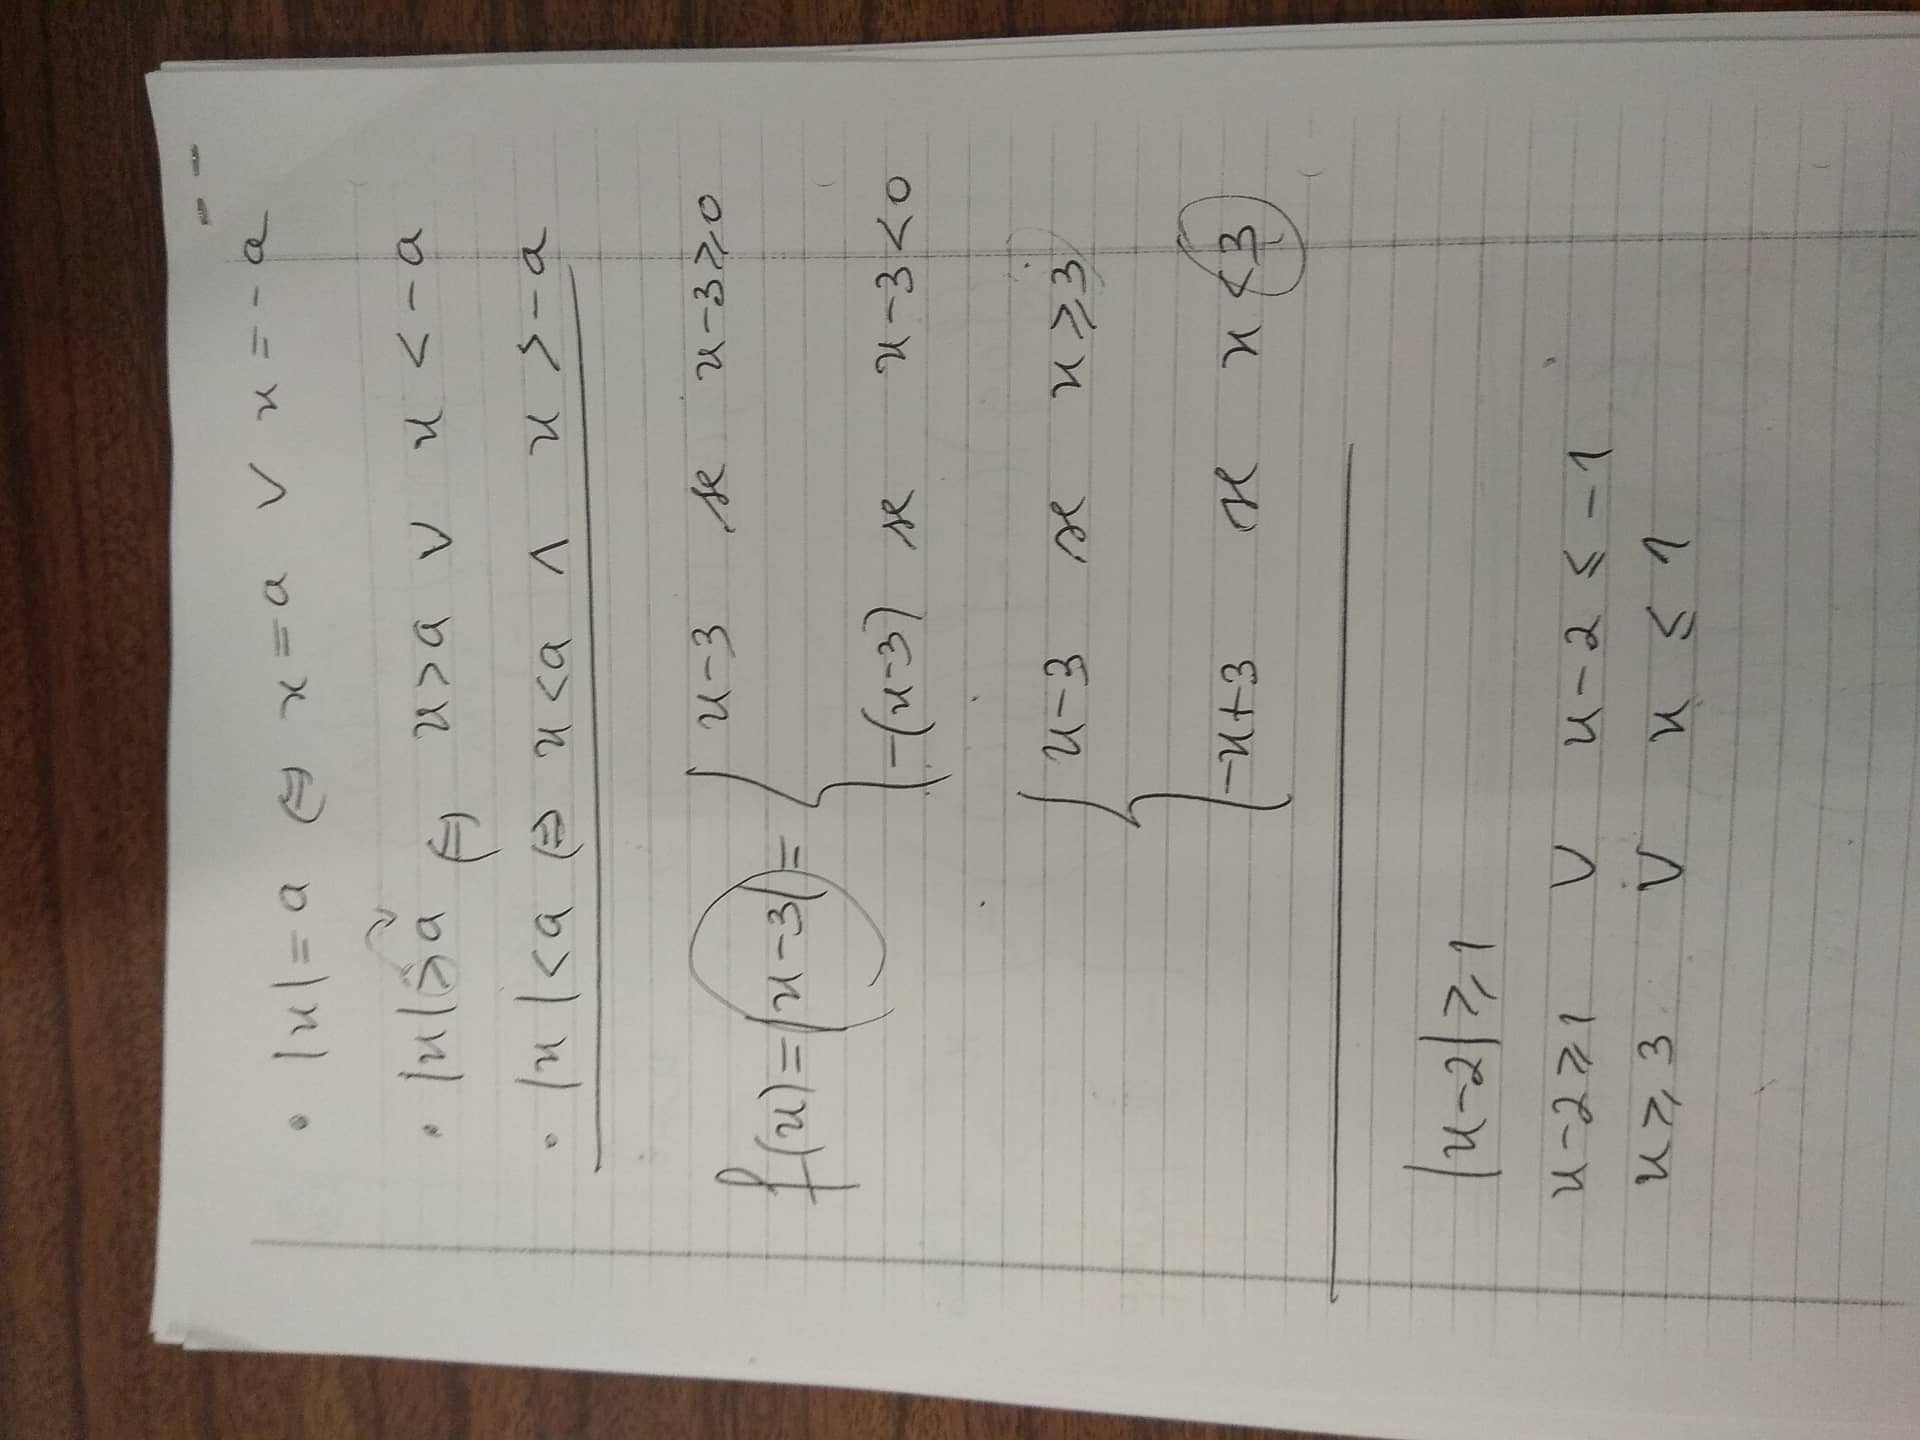 • |x| = a ⇔ x = a ∨ x = -a
• |x| > a ⇔ x > a ∨ x < -a
• |x| < a ⇔ x < a ∧ x > -a
f(x) = |x-3| = { x-3 se x-3 ⩾ 0
-(x-3) se x-3 < 0
{ x-3 se x ⩾ 3
-x+3 se x < 3
|x-2| ⩾ 1
x-2 ⩾ 1 ∨ x-2 ≤ -1
x ⩾ 3 ∨ x ≤ 1